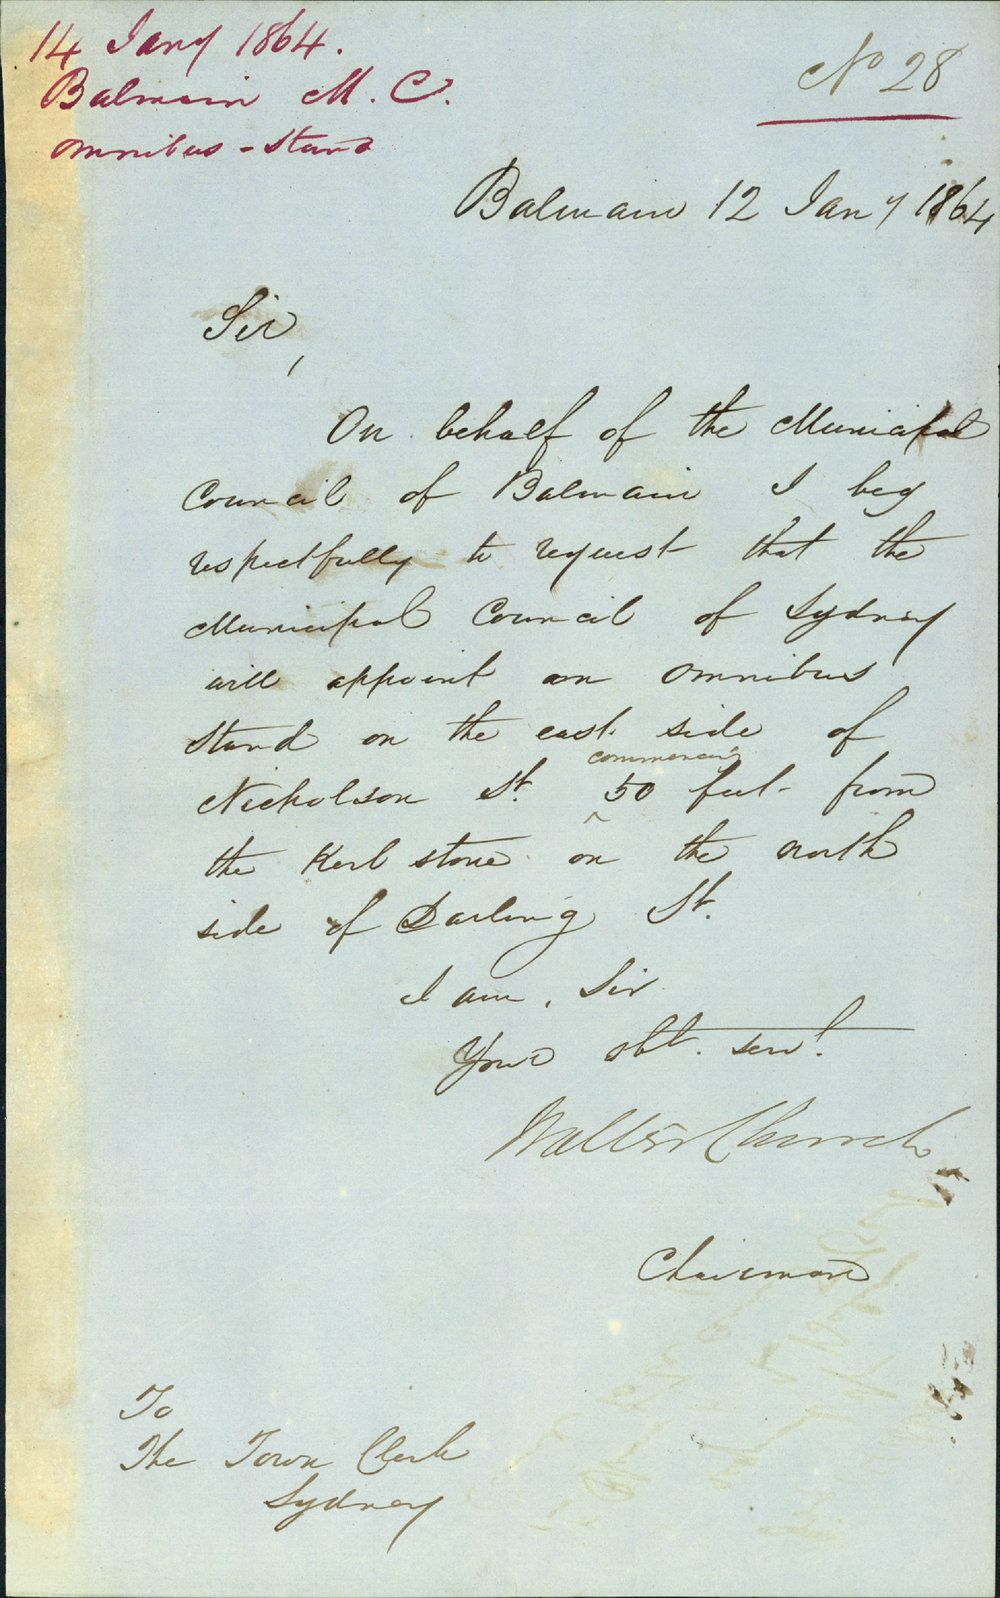 14 Jany 1864.
Balmain M. C.
omnibus - Stand
No 28
Balmain 12 Jany 1864
Sir,
On behalf of the Municipal
Council of Balmain I beg
respectfully to request that the
Municipal Council of Sydney
will appoint an omnibus
stand on the east side of
Nicholson St. ^commencing 50 feet from
the Kerb stone on the north
side of Darling St.
I am, Sir
Your obt. servt.
Walter Church
Chairman
To
The Town Clerk
Sydney